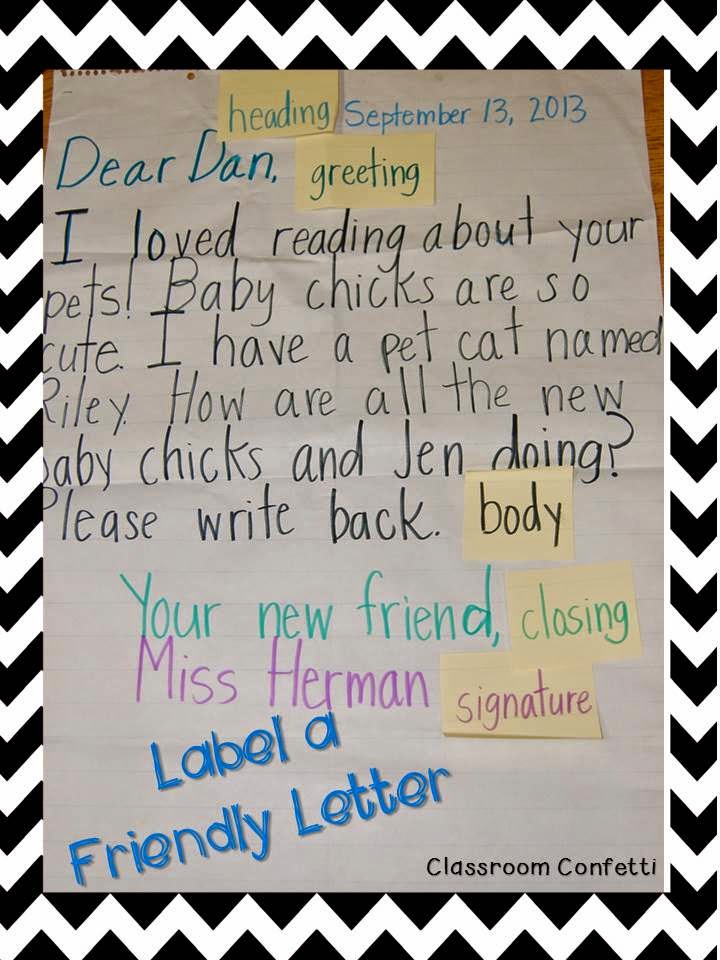 heading September 13, 2013
Dear Dan, greeting
I loved reading about your
pets! Baby chicks are so
cute. I have a pet cat named
Riley. How are all the new
baby chicks and Jen doing?
Please write back. body
Your new friend, closing
Miss Herman signature
Label a
Friendly Letter
Classroom Confetti